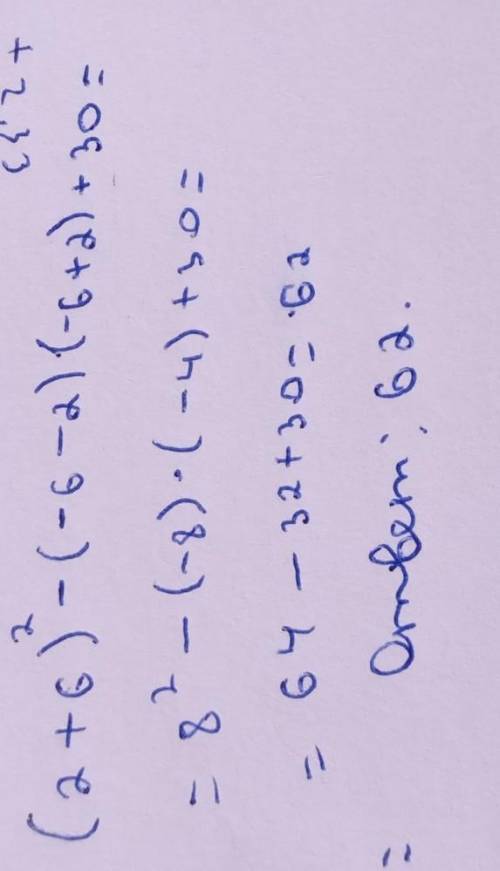 (2+6)² - (-6-2)(-6+2)+30=
= 8² - (-8)·(-4)+30=
= 64 - 32+30=62
= Ответ: 62.